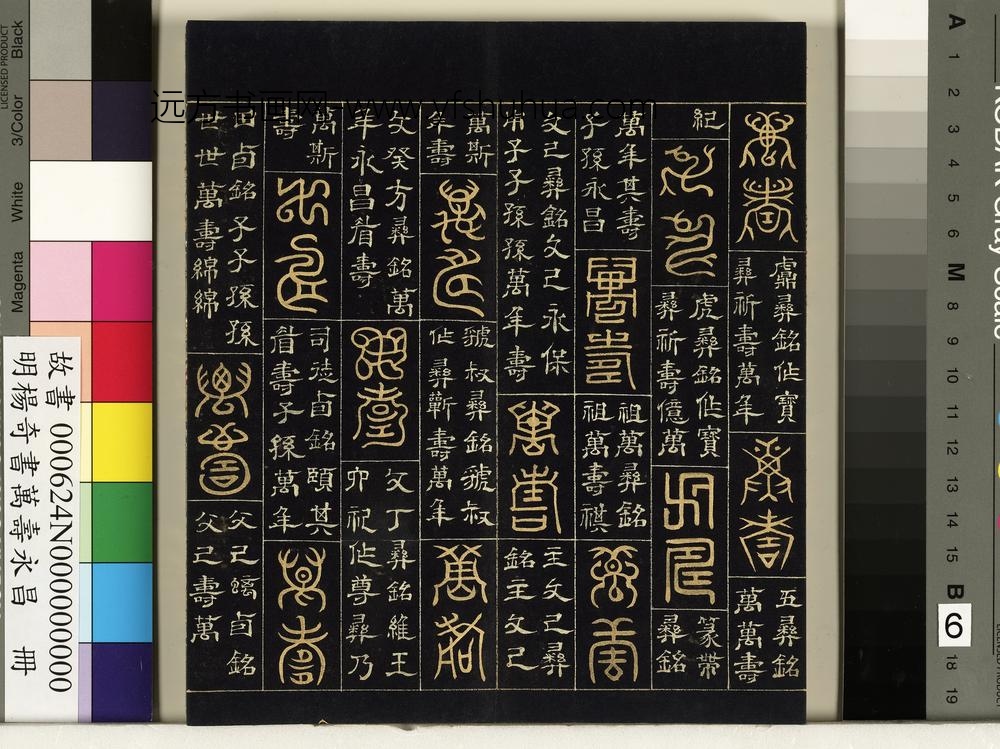 萬壽
彝銘作寶
彝祈壽萬年
萬壽
五彝銘
萬萬壽
紀
萬壽
虎彝銘作寶
彝祈壽億萬
萬壽
篆帶
彝銘
萬年其壽
子孫永昌
萬壽
祖萬彝銘
祖萬壽祺
萬壽
父己彝銘父己永保
用子子孫孫萬年壽
萬壽
主父己彝
銘主父己
萬斯
年壽
萬壽
虢叔彝銘虢叔
作彝蘄壽萬年
萬壽
父癸方彝銘萬
年永昌眉壽
萬壽
父丁彝銘維王
卯祀作尊彝乃
萬斯
壽
萬壽
司徒卣銘頤其
眉壽子孫萬年
萬壽
田卣銘子子孫孫
世世萬壽綿綿
萬壽
父己螭卣銘
父己壽萬
远方书画网 www.yfshuhua.com
故書 000624N000000000
明楊奇書萬壽永昌 冊
LICENSED PRODUCT
Black
3/Color
White
Magenta
A 1 2 3 4 5 6 M 8 9 10 11 12 13 14 15 B 18 19
6